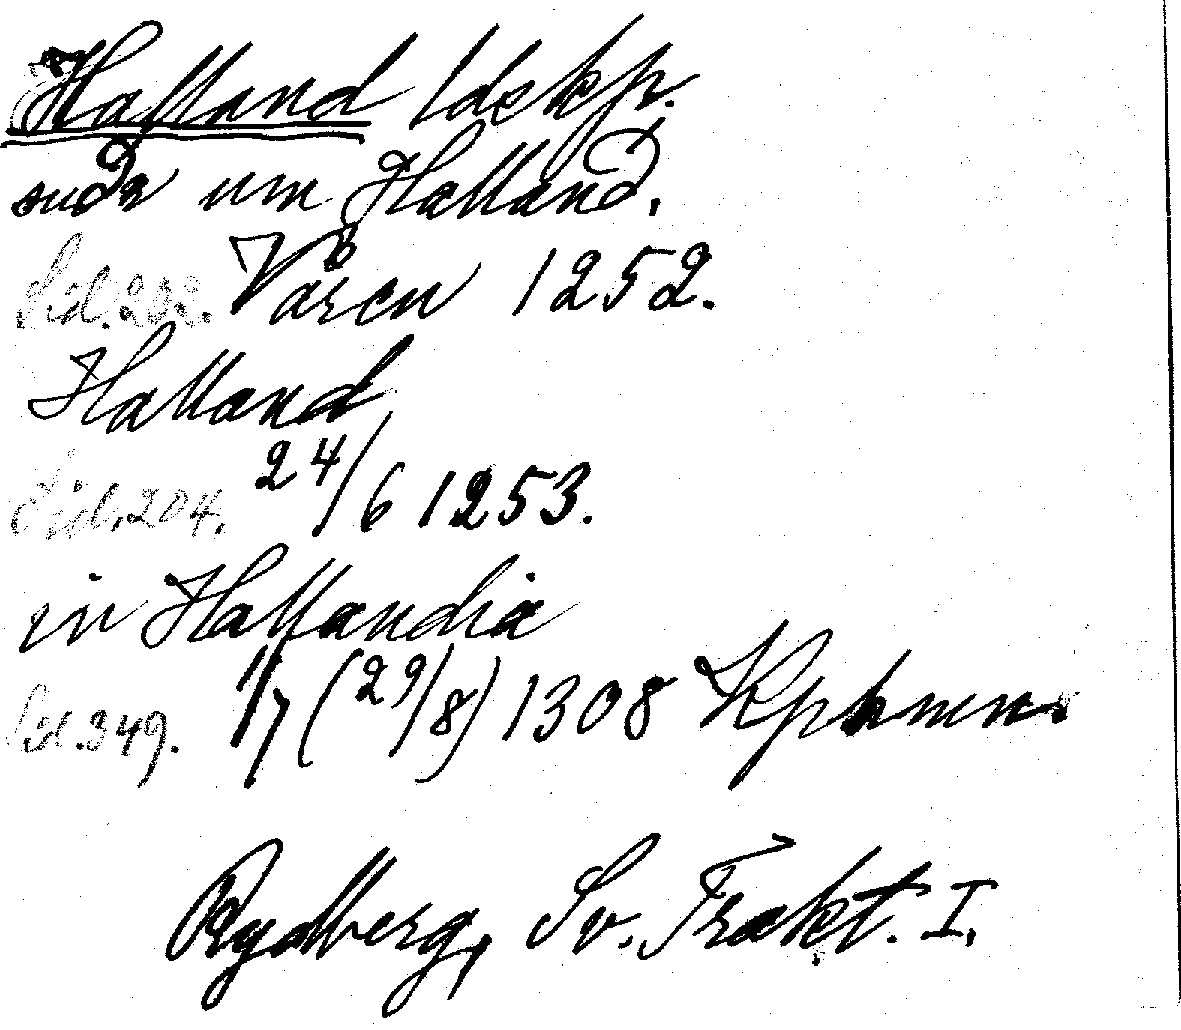 Halland ldskp.
suðr um Halland.
Sid. 202. Våren 1252.
Halland
Sid. 204. 24/6 1253.
in Hallandia
Sid. 349. 1/7 (29/8) 1308 Kphmn.
Rydberg, Sv. Trakt. I.